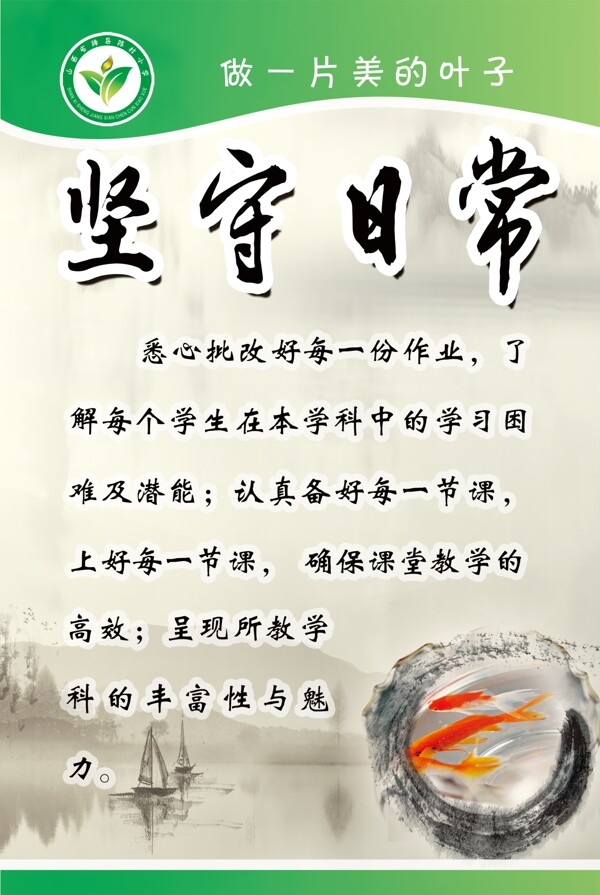 山西省绛县陈村小学
SHAN XI SHENG JIANG XIAN CHEN CUN XIAO XUE
做一片美的叶子
坚守日常
悉心批改好每一份作业，了
解每个学生在本学科中的学习困
难及潜能；认真备好每一节课，
上好每一节课， 确保课堂教学的
高效；呈现所教学
科的丰富性与魅
力。